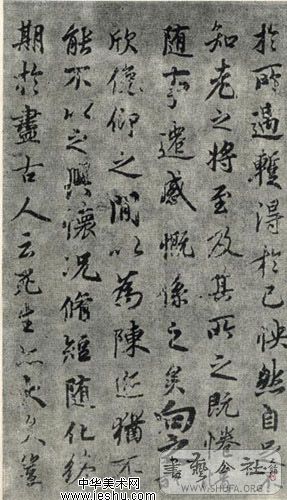 於所遇蹔得於己怏然自足
知老之將至及其所之既惓
随事遷感慨係之矣向之
欣俛仰之閒以為陳迹猶不
能不以之興懷况脩短随化終
期於盡古人云死生亦大矣豈
書藝公社
WWW.SHUFA.ORG
中华美术网
www.ieshu.com